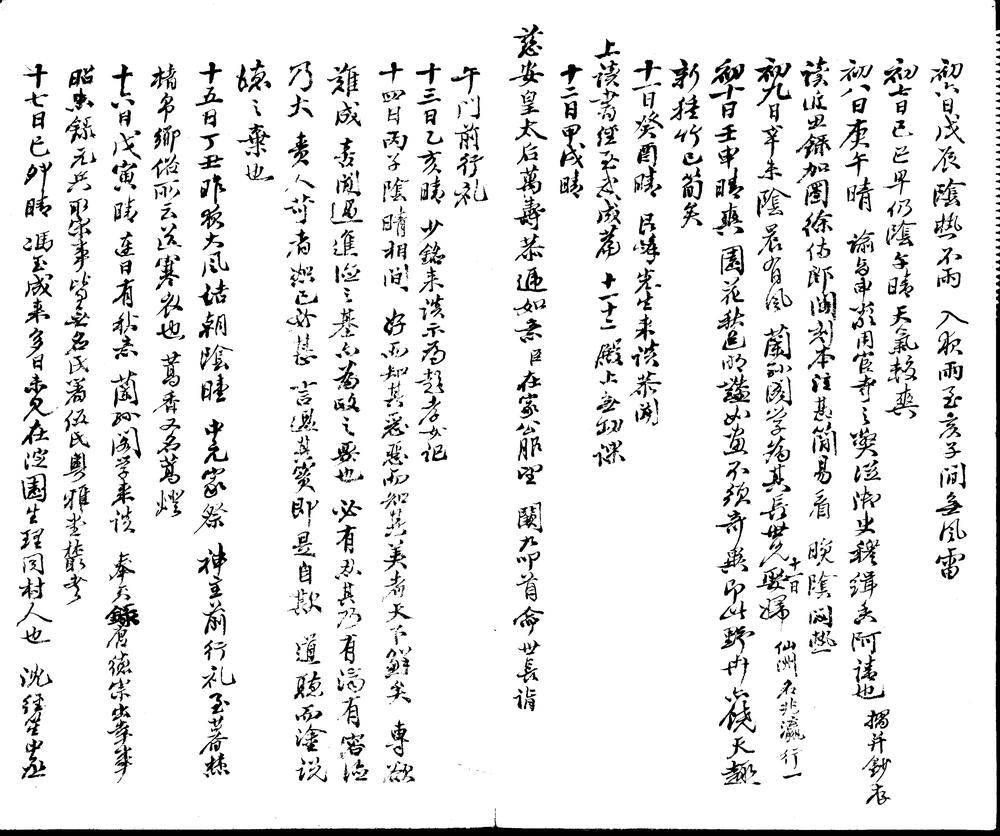 初六日戊辰陰熱不雨 入夜雨至亥子間無風雷
初七日己巳早仍陰午晴天氣較爽
初八日庚午晴 諭旨申嚴用宦寺之獎從御史穆緝香阿請也 摺并鈔存
讀近思錄加圈徐侍郎開刻本注甚簡易看 晚陰悶熱
初九日辛未陰晨有風 蘭孫閣學為其長世兄十一日娶婦 仙洲名兆瀛行一
初十日壬申晴爽 園花秋色明艷如畫不須奇興即此野卉亦饒天趣
新種竹已筍矣
十一日癸酉晴 艮峰先生來談恭聞
上讀書經至武成篇 十一十二 殿上無功課
十二日甲戌晴
慈安皇太后萬壽恭遞如意臣在家公服望 闕九叩首命世長詣
午門前行礼
十三日乙亥晴 少銘來談示為趙孝女記
十四日丙子陰晴相間 好而知其惡惡而知其美者天下鮮矣 專欲
難成 喜聞過進德之基亦為政之要也 必有忍其乃有濟有容德
乃大 責人苛者恕己必甚 言過其實即是自欺 道聽而塗說
德之棄也
十五日丁丑昨夜大風詰朝陰曀 中元家祭 神主前行礼至暮焚
楮帛鄉俗所云送寒衣也 蒿香又名蒿燈
十六日戊寅晴 連日有秋意 蘭孫閣學來談 奉天錄唐德宗出幸事
昭忠錄元兵取宋事皆無名氏著伍氏粵雅堂叢書
十七日己卯晴 馮玉成來多日未見在淀園生理同村人也 沈經笙中丞